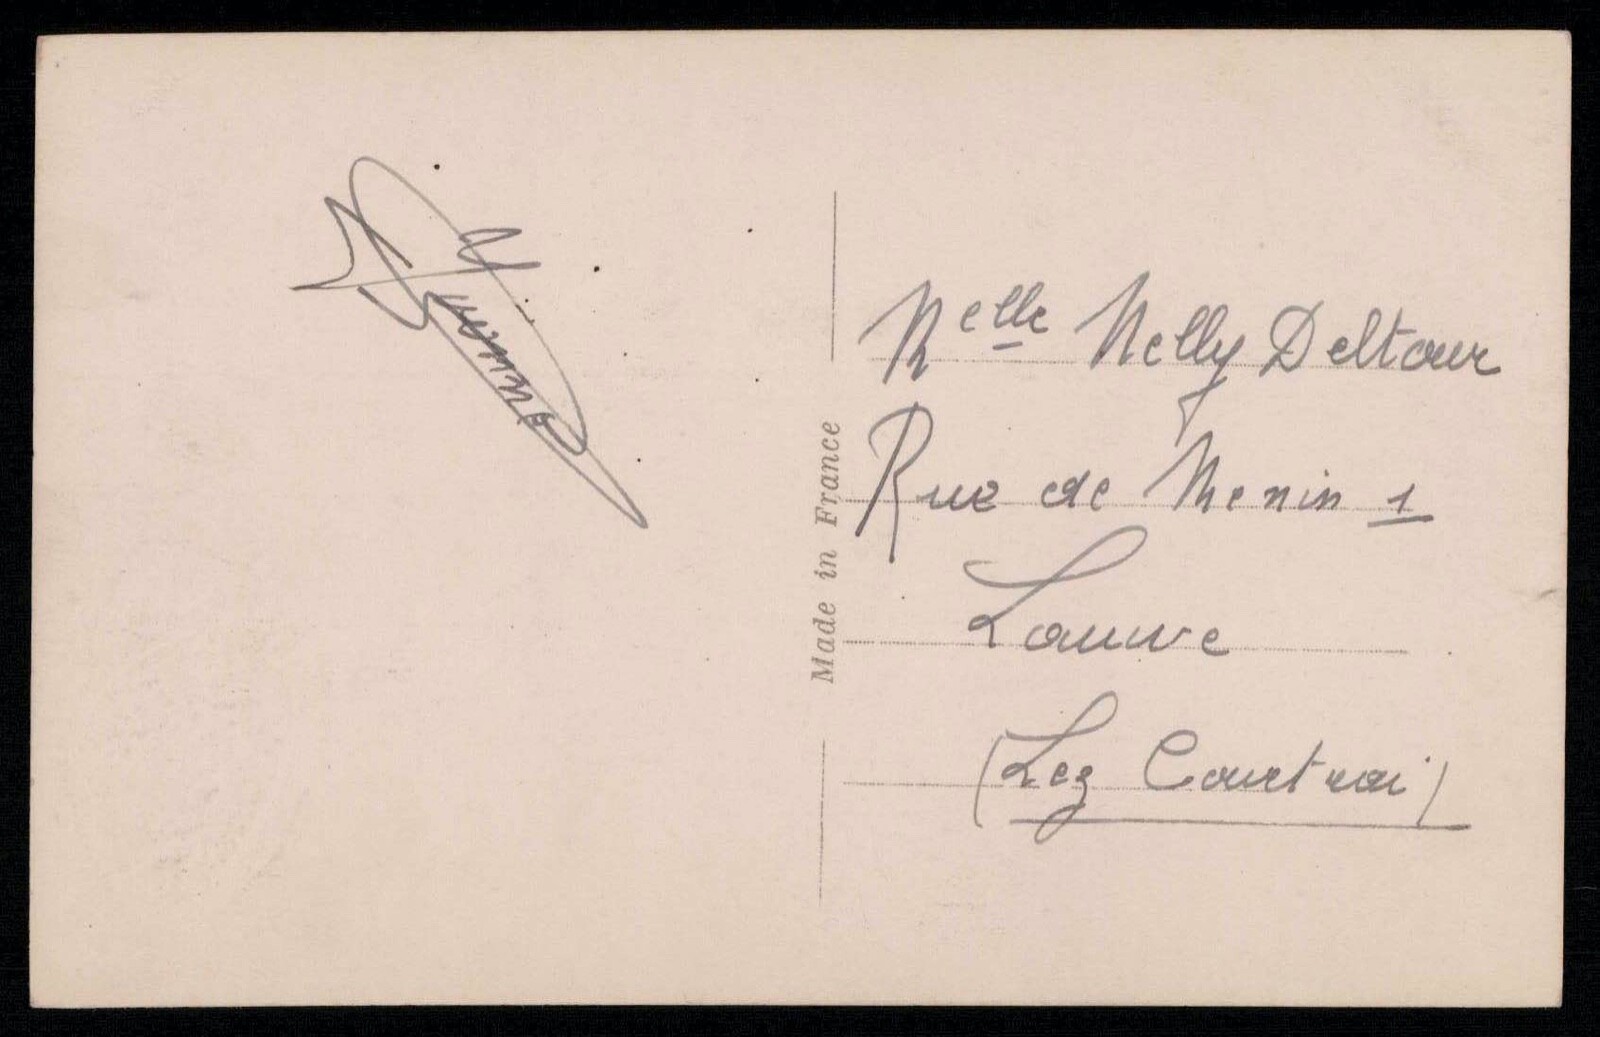 Melle Nelly Deltour
Rue de Menin 1
Lauwe
(Lez Courtrai)
Made in France